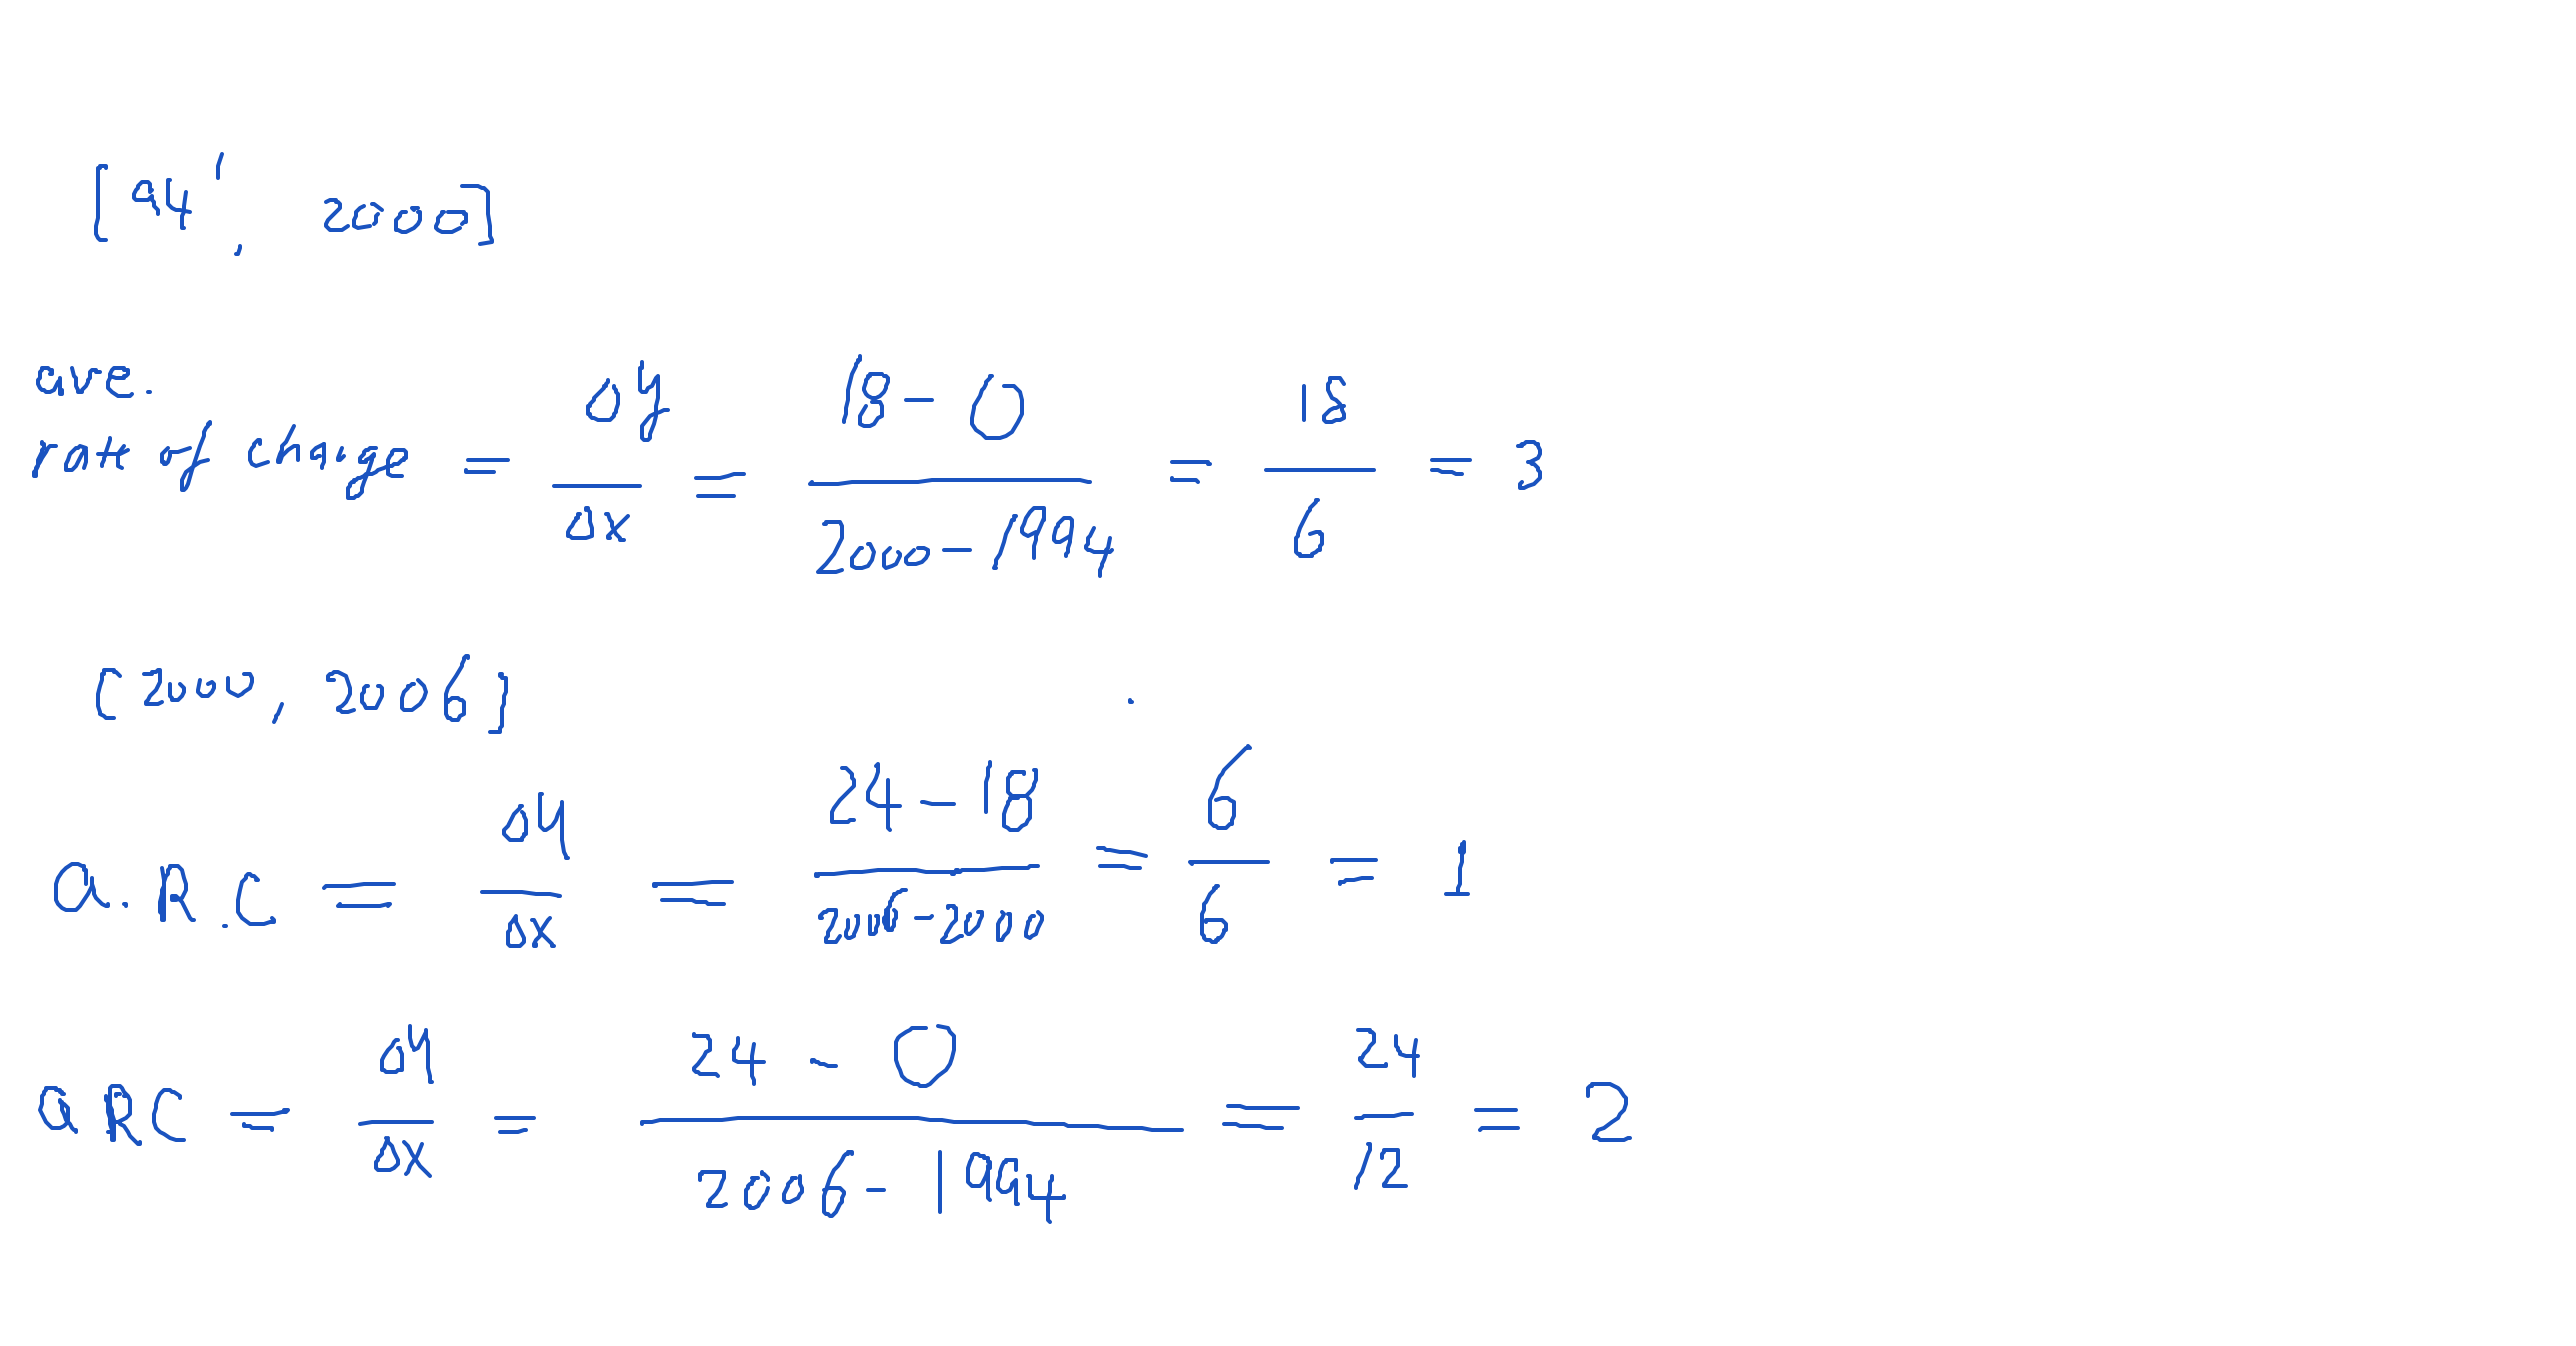 [94', 2000]
ave.
rate of change = Δy/Δx = 18-0/2000-1994 = 18/6 = 3
[2000, 2006]
a.R.C = Δy/Δx = 24-18/2006-2000 = 6/6 = 1
aRC = Δy/Δx = 24-0/2006-1994 = 24/12 = 2